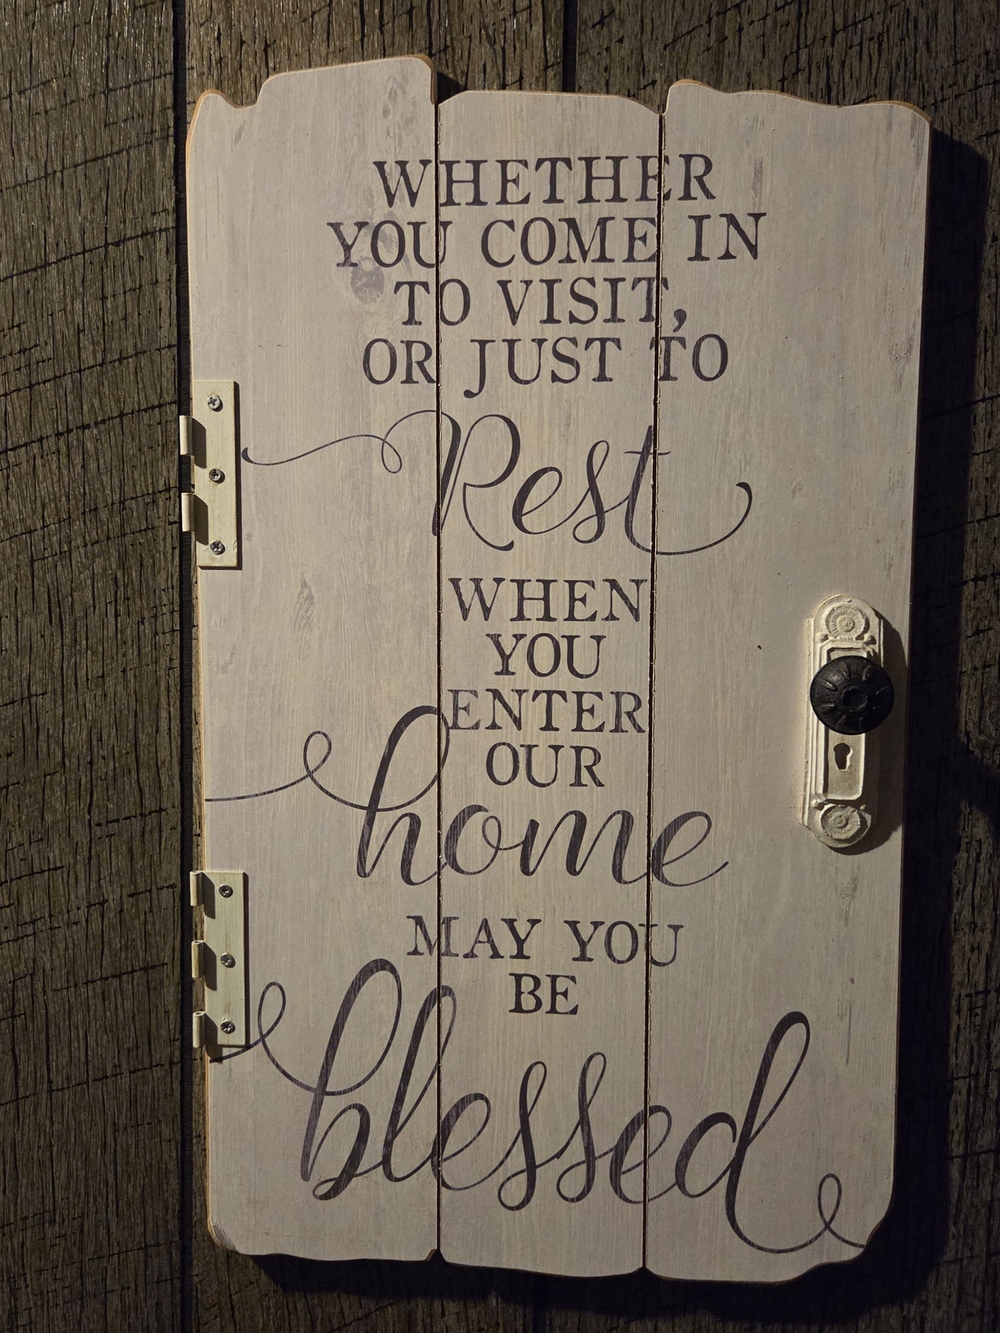 WHETHER
YOU COME IN
TO VISIT,
OR JUST TO
Rest
WHEN
YOU
ENTER
OUR
home
MAY YOU
BE
blessed